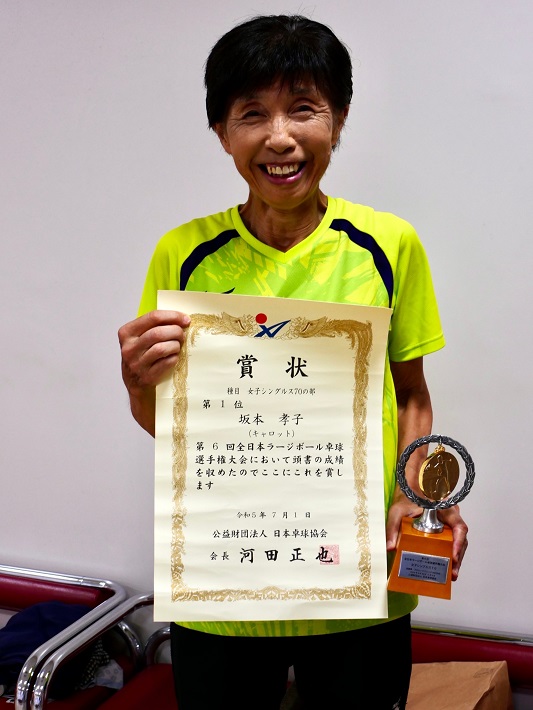 賞状
種目 女子シングルス70の部
第1位
坂本 孝子
(キャロット)
第6回全日本ラージボール卓球
選手権大会において頭書の成績
を収めたのでここにこれを賞し
ます
令和5年7月1日
公益財団法人 日本卓球協会
会長 河田正也